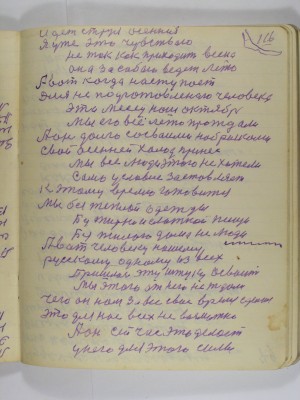 116
Идет струя осенний
Я уже это чувствую
не так как приходит весна
она за собою ведет лето
А вот когда наступает
для не подготовленного человека
это месяц наш октябрь
мы его всё лето прождали
А он долго
свой осенней холод принес
мы все люди этого не хотели
Само условие заставляет
к этому время готовится
мы без теплой одежды
Без жирной сладкой пищи
Без жилого дома не люди
А вот человеку нашему
русскому одному из всех
Пришлось эту штуку освоит
мы этого от него не ждали
чего он нам за все свое время
это для нас всех не возможно
А он сейчас это делает
у него для этого силы